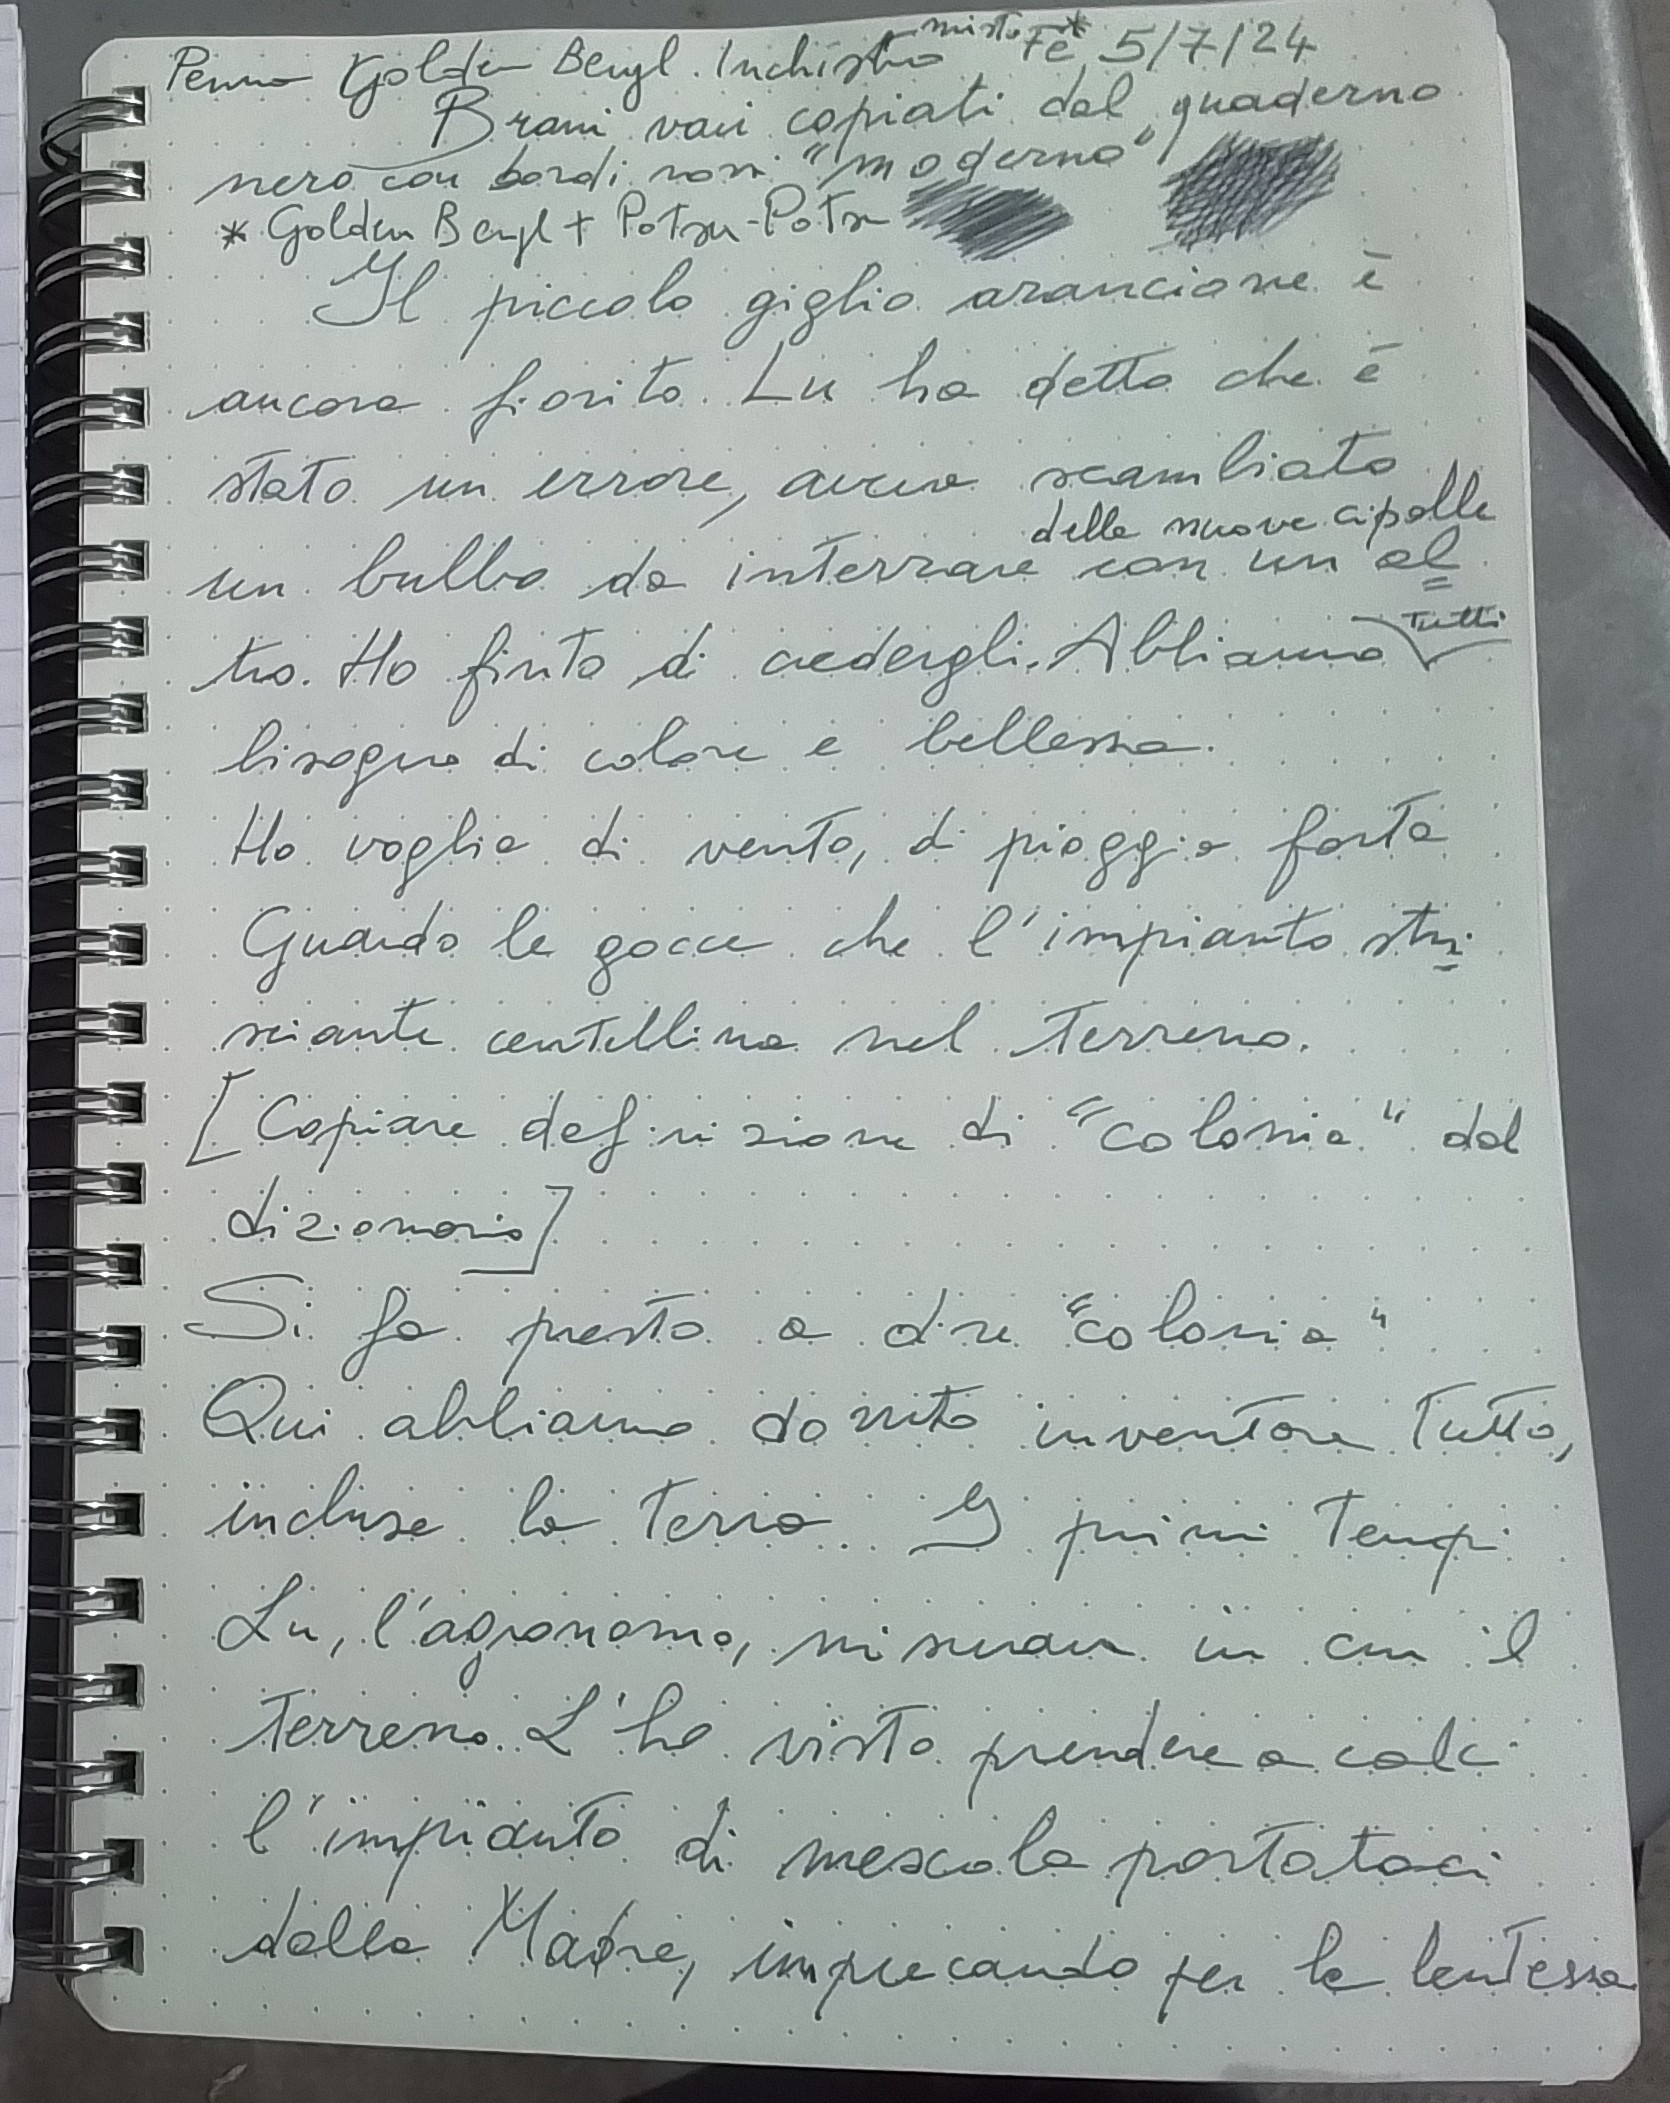 Penna Golden Beryl. Inchiostro misto Fe* 5/7/24
Brani vari copiati dal quaderno
nero con bordi rossi "moderno"
* Golden Beryl + Potsu-Potsu
Il piccolo giglio arancione è
ancora fiorito. Lu ha detto che è
stato un errore, aveva scambiato
delle nuove cipolle
un bulbo da interrare con un al=
tro. Ho finto di credergli. Abbiamo tutti
bisogno di colore e bellezza.
Ho voglia di vento, di pioggia forte
Guardo le gocce che l'impianto stri-
sciante centellina nel terreno.
[Copiare definizione di "colonia" dal
dizionario]
Si fa presto a dire "colonia"
Qui abbiamo dovuto inventare tutto,
incluse la terra. I primi tempi
Lu, l'agronomo, misurava in cm il
terreno. L'ho visto prendere a calci
l'impianto di mescola portataci
dalla Madre, imprecando per la lentezza